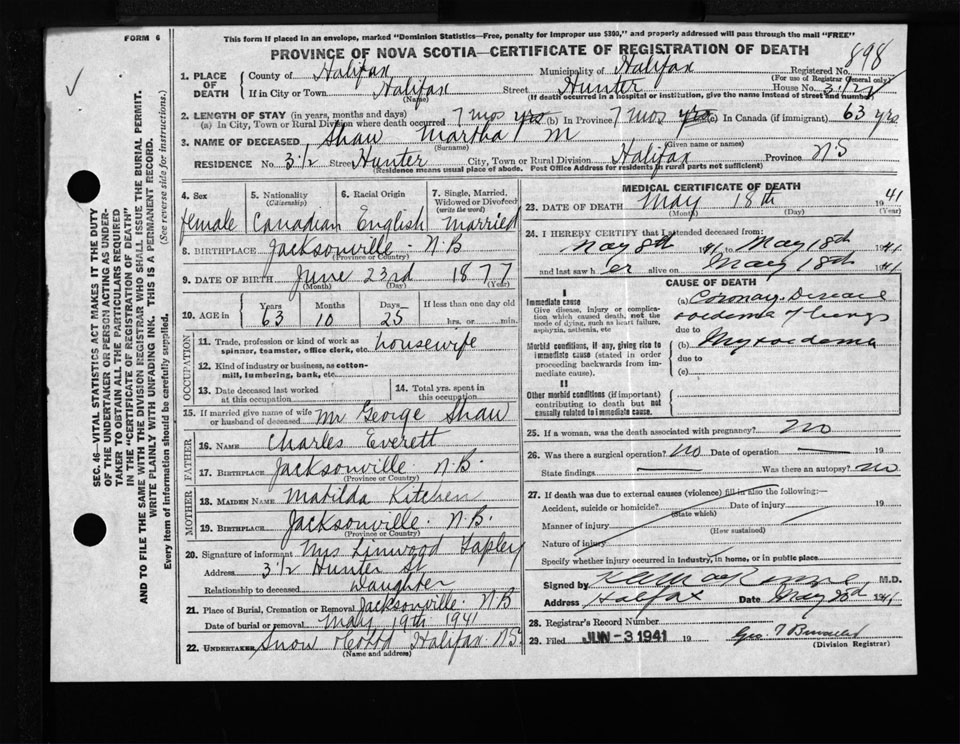 FORM 6
This form if placed in an envelope, marked "Dominion Statistics—Free, penalty for improper use $300," and properly addressed will pass through the mail "FREE"
PROVINCE OF NOVA SCOTIA—CERTIFICATE OF REGISTRATION OF DEATH
898
1. PLACE OF DEATH County of Halifax Municipality of Halifax Registered No.
(For use of Registrar General only)
If in City or Town Halifax Street Hunter House No. 3 1/2
(Name) (If death occurred in a hospital or institution, give the name instead of street and number)
2. LENGTH OF STAY (in years, months and days)
(a) In City, Town or Rural Division where death occurred 7 mos yrs (b) In Province 7 mos yrs (c) In Canada (if immigrant) 63 yrs
3. NAME OF DECEASED Shaw Martha M
(Surname) (Given name or names)
RESIDENCE No. 3 1/2 Street Hunter City, Town or Rural Division Halifax Province N S
(Residence means usual place of abode. Post Office Address for residents in rural parts not sufficient)
4. Sex 5. Nationality (Citizenship) 6. Racial Origin 7. Single, Married, Widowed or Divorced (write the word)
female Canadian English married
8. BIRTHPLACE Jacksonville N.B
(Province or Country)
9. DATE OF BIRTH June 23rd 1877
(Month) (Day) (Year)
10. AGE in Years Months Days If less than one day old
63 10 25 hrs. or min.
OCCUPATION
11. Trade, profession or kind of work as spinner, teamster, office clerk, etc. housewife
12. Kind of industry or business, as cotton-mill, lumbering, bank, etc.
13. Date deceased last worked at this occupation 14. Total yrs. spent in this occupation
15. If married give name of wife or husband of deceased Mr George Shaw
FATHER
16. NAME Charles Everett
17. BIRTHPLACE Jacksonville N.B.
(Province or Country)
MOTHER
18. MAIDEN NAME Matilda Kitchen
19. BIRTHPLACE Jacksonville. N.B.
(Province or Country)
20. Signature of informant Mrs Linwood Tapley
Address 3 1/2 Hunter St
Relationship to deceased Daughter
21. Place of Burial, Cremation or Removal Jacksonville. N.B
Date of burial or removal May 19th 1941
22. UNDERTAKER Snow Halifax N.S.
(Name and address)
MEDICAL CERTIFICATE OF DEATH
23. DATE OF DEATH May 18th 1941
(Month) (Day) (Year)
24. I HEREBY CERTIFY that I attended deceased from:
May 8th 41 to May 18th 1941
and last saw h er alive on May 18th 1941
CAUSE OF DEATH
I
Immediate cause
Give disease, injury or complication which caused death, not the mode of dying, such as heart failure, asphyxia, asthenia, etc
(a) Coronary Disease
oedema of lungs
due to
Morbid conditions, if any, giving rise to immediate cause (stated in order proceeding backwards from immediate cause).
(b) Myxoedema
due to
(c)
II
Other morbid conditions (if important) contributing to death but not causally related to immediate cause.
25. If a woman, was the death associated with pregnancy? no
26. Was there a surgical operation? no Date of operation — 19
State findings — Was there an autopsy? no
27. If death was due to external causes (violence) fill in also the following:—
Accident, suicide or homicide? Date of injury 19
(State which)
Manner of injury
(How sustained)
Nature of injury
Specify whether injury occurred in industry, in home, or in public place.
Signed by M.D.
Address Halifax Date May 1941
28. Registrar's Record Number
29. Filed JUN -3 1941 19 Geo. T
(Division Registrar)
SEC. 46—VITAL STATISTICS ACT MAKES IT THE DUTY
OF THE UNDERTAKER OR PERSON ACTING AS UNDER-
TAKER TO OBTAIN ALL THE PARTICULARS REQUIRED
IN THE "CERTIFICATE OF REGISTRATION OF DEATH"
AND TO FILE THE SAME WITH THE DIVISION REGISTRAR WHO SHALL ISSUE THE BURIAL PERMIT.
WRITE PLAINLY WITH UNFADING INK. THIS IS A PERMANENT RECORD.
Every item of information should be carefully supplied. (See reverse side for instructions.)